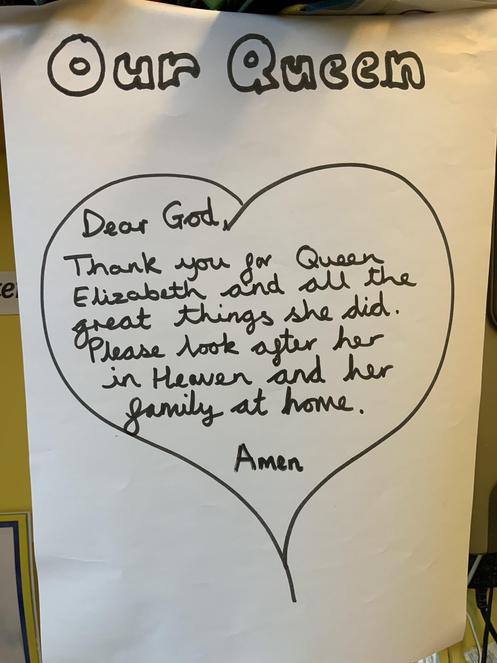 Our Queen
Dear God,
Thank you for Queen
Elizabeth and all the
great things she did.
Please look after her
in Heaven and her
family at home.
Amen